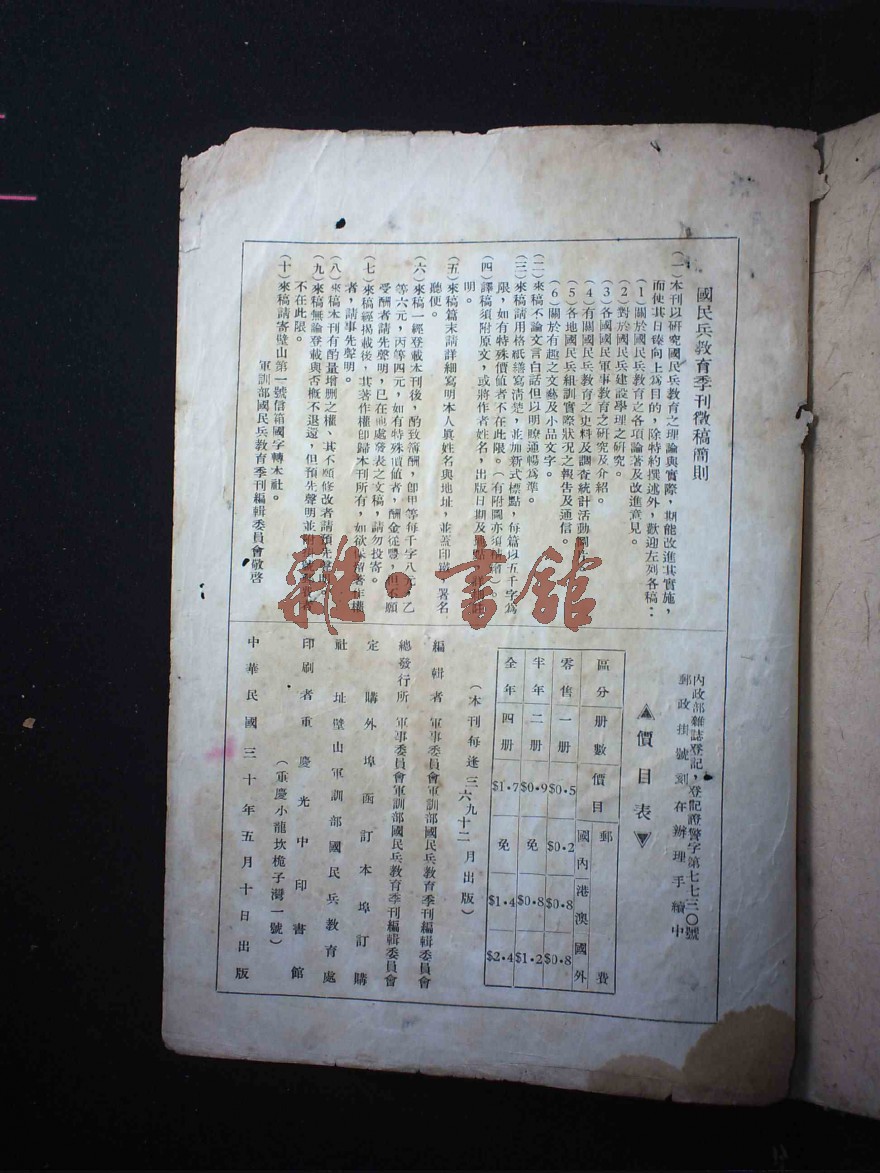 國民兵教育季刊徵稿簡則
(一)本刊以研究國民兵教育之理論與實際,期能改進其實施,
而使其日臻向上爲目的,除特約撰述外,歡迎左列各稿:
(1)關於國民兵教育之各項論著及改進意見。
(2)對於國民兵建設學理之研究。
(3)各國國民軍事教育之研究及介紹。
(4)有關國民兵教育之史料及調查統計活動
(5)各地國民兵組訓實際狀況之報告及通信。
(6)關於有趣之文藝及小品文字。
(二)來稿不論文言白話但以明瞭通暢爲準。
(三)來稿請用格紙繕寫清楚,並加新式標點,每篇以五千字爲
限,如有特殊價值者不在此限。(有附圖亦須
(四)譯稿須附原文,或將作者姓名,出版日期及地點
明。
(五)來稿篇末請詳細寫明本人眞姓名與地址,並蓋印 署名
聽便。
(六)來稿一經登載本刊後,酌致薄酬,卽甲等每千字八元,乙
等六元,丙等四元,如有特殊價值者,酬金從豐,但 願
受酬者請先聲明,已在他處發表之文稿,請勿投寄。
(七)來稿經揭載後,其著作權卽歸本刊所有,如欲保留著作權
者,請事先聲明。
(八)來稿本刊有酌量增删之權、其不願修改者請預先聲
(九)來稿無論登載與否概不退還,但預先聲明並附 者
不在此限。
(十)來稿請寄璧山第一號信箱國字轉本社。
軍訓部國民兵教育季刊編輯委員會敬啓
雜·書館
內政部雜誌登記,登記證警字第七七三〇號
郵政掛號刻在辦理手續中
▲價目表▼
區分 册數 價目 郵費 國內 港澳 國外
零售 一册 $0.5 $0.2 $0.8 $0.8
半年 二册 $0.9 免 $0.8 $1.2
全年 四册 $1.7 免 $1.4 $2.4
(本刊每逢三六九十二月出版)
編輯者 軍事委員會軍訓部國民兵教育季刊編輯委員會
總發行所 軍事委員會軍訓部國民兵教育季刊編輯委員會
定購 外埠函訂本埠訂購
社址 璧山軍訓部國民兵教育處
印刷者 重慶光中印書館
(重慶小龍坎桅子灣一號)
中華民國三十年五月十日出版